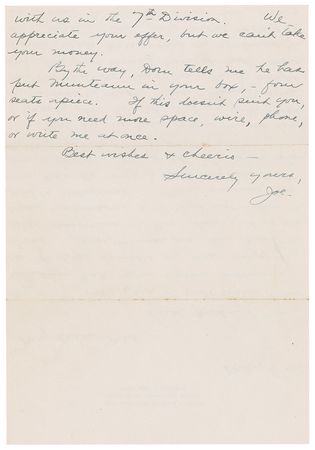 with us in the 7th Division. We
appreciate your offer, but we can't take
your money.
By the way, Dorn tells me he has
put Munteann in your box, - four
seats apiece. If this doesn't suit you,
or if you need more space, wire, phone,
or write me at once.
Best wishes & cheerio -
Sincerely yours,
Joe -